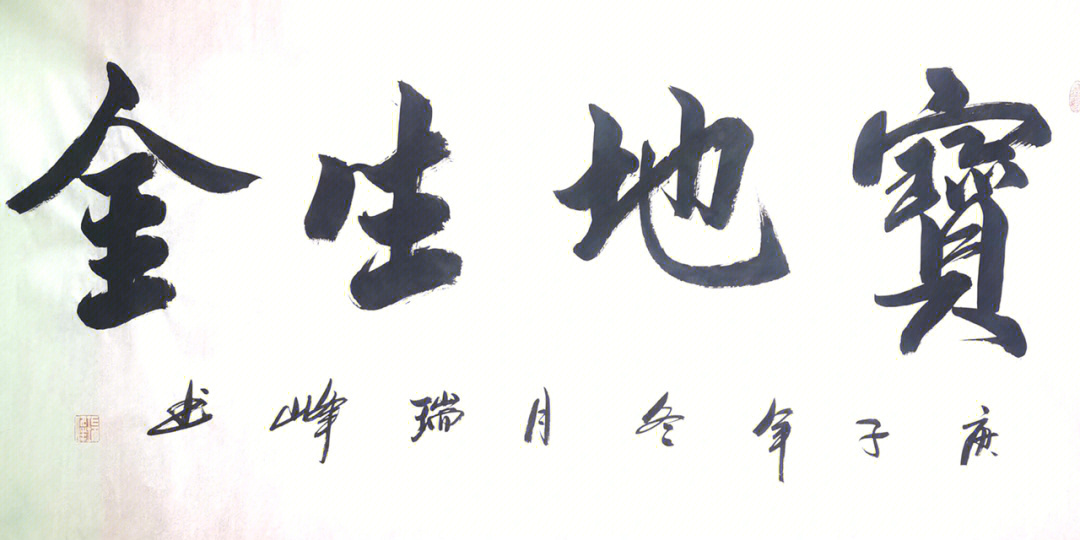 寶地生金
庚子年冬月瑞峰书